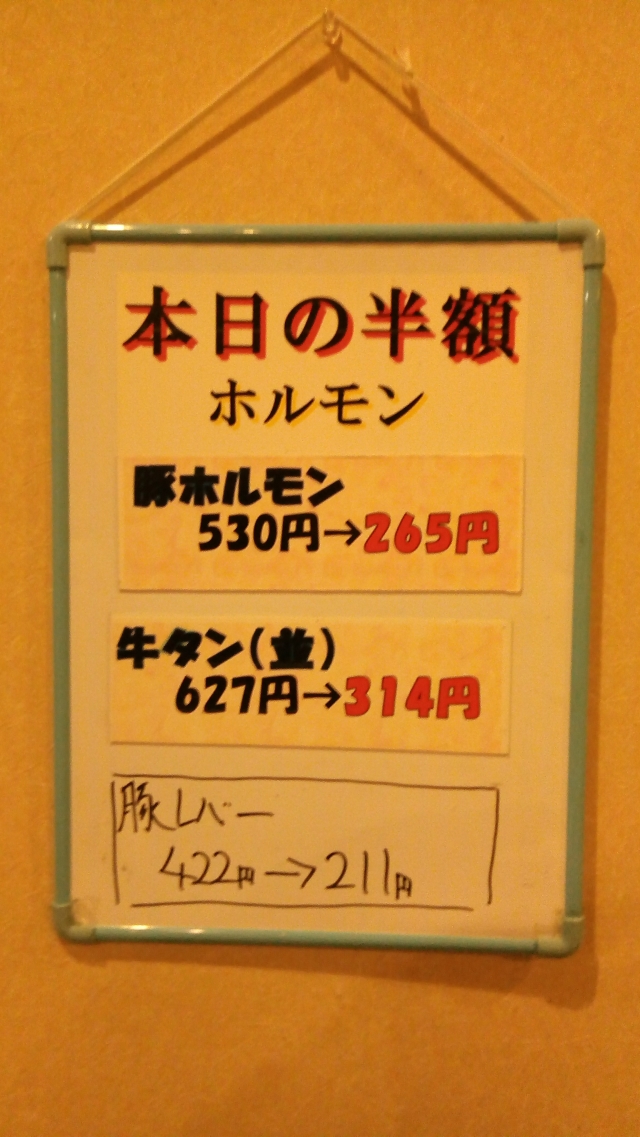 本日の半額
ホルモン
豚ホルモン
530円→265円
牛タン(並)
627円→314円
豚レバー
422円→211円